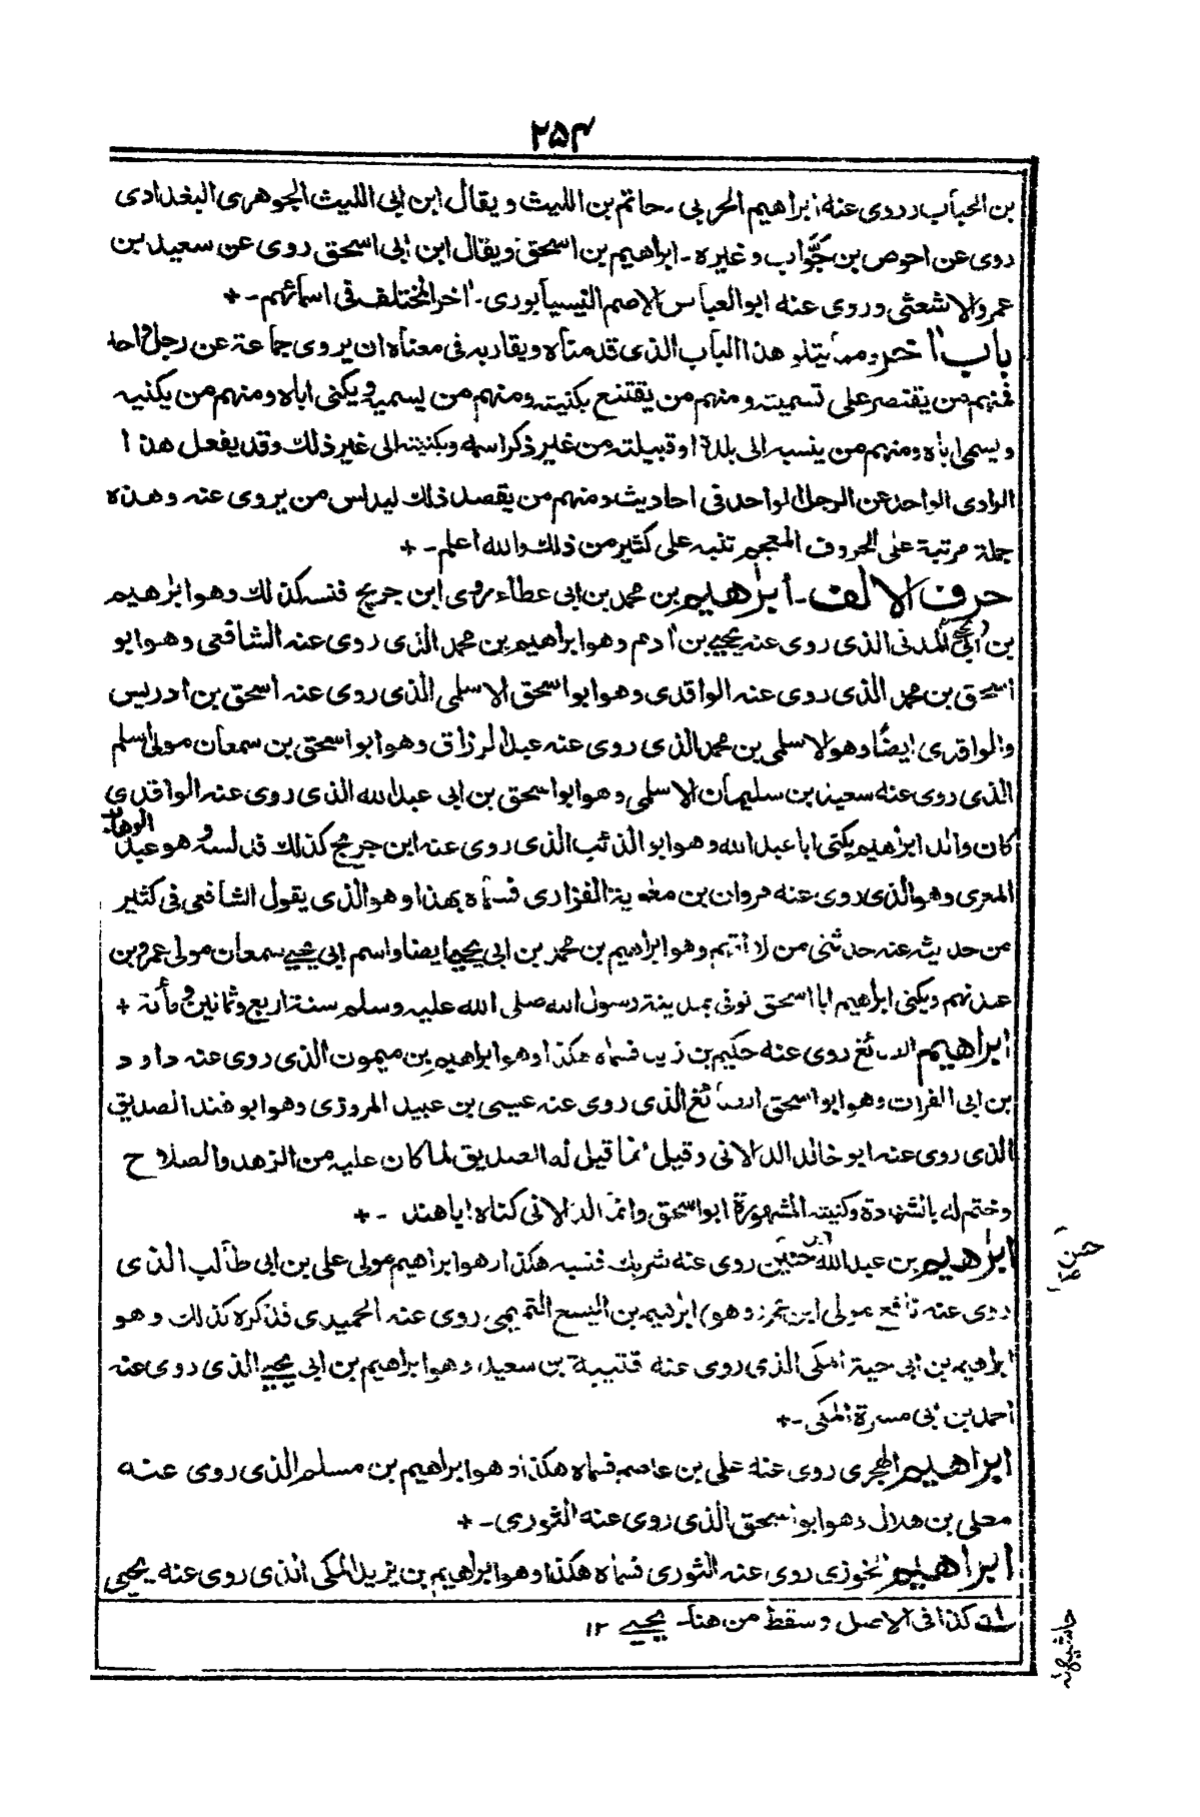 ۲۵۴
بن الحباب روى عنه ابراهيم الحربي ـ حاتم بن الليث ويقال ابن ابى الليث الجوهرى البغدادى
روى عن احوص بن جوّاب وغيره ـ ابراهيم بن اسحق ويقال ابن ابى اسحق روى عن سعيد بن
عمرو الاشعثى وروى عنه ابو العباس الاصم النيسابورى ـ اخر المختلف فى اسمائهم ـ +
باب اخر ومما يتلو هذا الباب الذى قدمناه ويقاربه فى معناه ان يروى جماعة عن رجل واحد
فمنهم من يقتصر على تسميته ومنهم من يقتنع بكنيته ومنهم من يسميه ويكنى اباه ومنهم من يكنيه
ويسمى اباه ومنهم من ينسبه الى بلدة او قبيلته من غير ذكر اسمه وبكنيته الى غير ذلك وقد يفعل هذا
الراوى الواحد عن الرجل الواحد فى احاديث ومنهم من يقصد ذلك ليدلس من يروى عنه وهذه
جملة مرتبة على الحروف المعجم تنبه على كثير من ذلك والله اعلم ـ +
حرف الالف ـ ابراهيم بن محمد بن ابى عطاء روى ابن جريج فنسبه كذلك وهو ابراهيم
بن ابى يحيى المدنى الذى روى عنه يحيى بن ادم وهو ابراهيم بن محمد الذى روى عنه الشافعى وهو ابو
اسحق بن محمد الذى روى عنه الواقدى وهو ابو اسحق الاسلمى الذى روى عنه اسحق بن ادريس
والواقدى ايضًا وهو الاسلمى بن محمد الذى روى عنه عبد الرزاق وهو ابو اسحق بن سمعان مولى اسلم
الذى روى عنه سعيد بن سليمان الاسلمى وهو ابو اسحق بن ابى عبد الله الذى روى عنه الواقدى
كان والد ابراهيم يكنى ابا عبد الله وهو ابو الذئب الذى روى عنه ابن جريج كذلك قد لسه وهو عبد الوهاب
المعرى وهو الذى روى عنه مروان بن معوية الفزارى فسماه بهذا وهو الذى يقول الشافعى فى كثير
من حديثه عنه حدثنى من لا اتهم وهو ابراهيم بن محمد بن ابى يحيى ايضا واسم ابى يحيى سمعان مولى عمرو بن
عبد نهم ويكنى ابراهيم ابا اسحق توفى بمدينة رسول الله صلى الله عليه وسلم سنة اربع وثمانين ومأئة +
ابراهيم الصائغ روى عنه حكيم بن زيد فسماه هكذا وهو ابراهيم بن ميمون الذى روى عنه داود
بن ابى الفرات وهو ابو اسحق الصائغ الذى روى عنه عيسى بن عبيد المروزى وهو ابو هند الصديق
الذى روى عنه ابو خالد الدالانى وقيل انما قيل له الصديق لما كان عليه من الزهد والصلاح
وختم له بالشهادة وكنيته المشهورة ابو اسحق وانما الدالانى كناه ابا هند ـ +
ابراهيم بن عبد الله بن حنين روى عنه شريك فنسبه هكذا وهو ابراهيم مولى على بن ابى طالب الذى
روى عنه نافع مولى ابن عمر (وهو) ابراهيم بن اليسع التميمى روى عنه الحميدى فذكره كذلك وهو
ابراهيم بن ابى حية المكى الذى روى عنه قتيبة بن سعيد وهو ابراهيم بن ابى يحيى الذى روى عنه
احمد بن ابى مسرة المكى ـ +
ابراهيم الهجرى روى عنه على بن عاصم فسماه هكذا وهو ابراهيم بن مسلم الذى روى عنه
معلى بن هلال وهو ابو اسحق الذى روى عنه الثورى ـ +
ابراهيم الخوزى روى عنه الثورى فسماه هكذا وهو ابراهيم بن يزيد المكى الذى روى عنه يحيى
كذا فى الاصل وسقط من هنا يحيى ۱۲